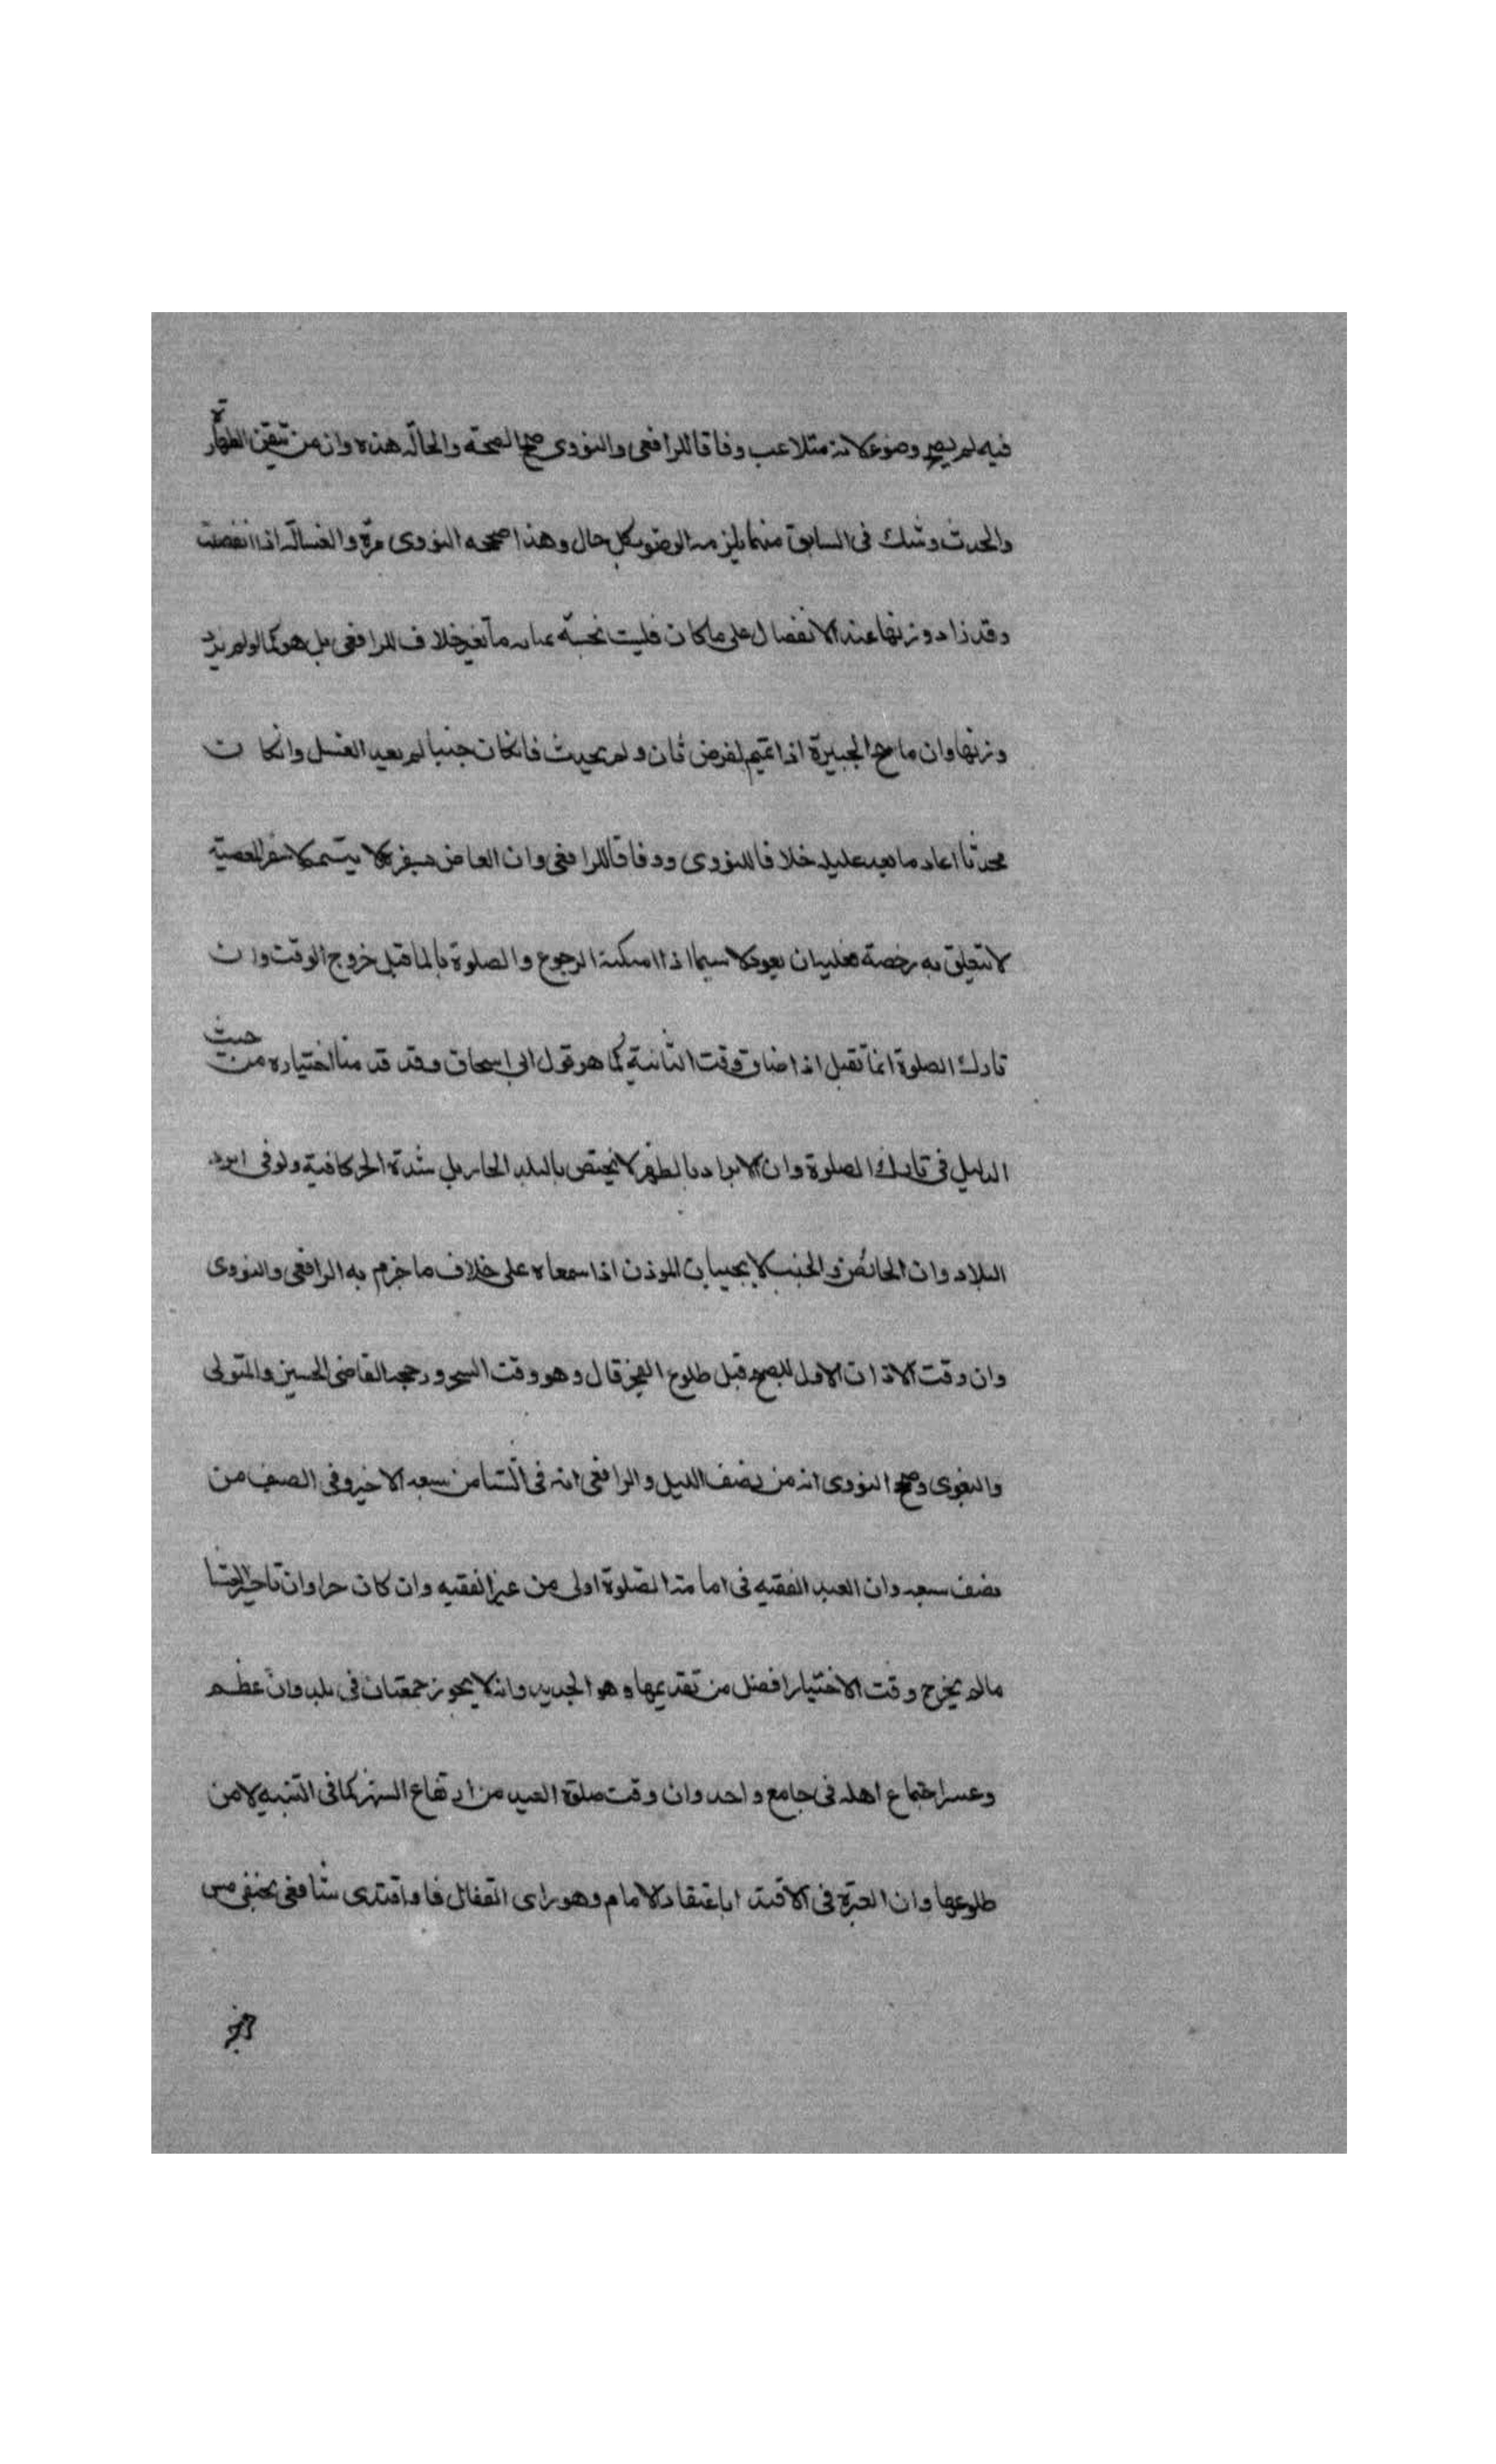 فيه لم يصح وضوءه لانه متلاعب وفاقا للرافعى والنووى صحح الصحة والحالة هذه وان من تيقن الطهارة
والحدث وشك فى السابق منهما يلزمه الوضوء بكل حال وهذا صححه النووى مرة والغسالة اذا انفصلت
وقد زاد وزنها عند الانفصال على ما كان فليست نجسة خلاف للرافعى بل هو كما لو لم يزد
وزنها وان ماسح الجبيرة اذا تيمم لفرض ثان ولم يحدث فان كان جنبا لم يعيد الغسل وان كان
محدثا اعاد ما بعد عليله خلافا للنووى ووفاقا للرافعى وان العاصى بسفره لا يتيمم لان سفر المعصية
لا تتعلق به رخصة فعليه ان يعود لا سيما اذا امكنه الرجوع والصلوة بالما قبل خروج الوقت وان
تارك الصلوة انما تقبل اذا ضاق وقت الثانية كما هو قول ابى اسحاق وقد قدمنا اختياره من حيث
الدليل فى تارك الصلوة وان الابراد بالظهر لا يختص بالبلد الحار بل شدة الحر كافية ولو فى ابرد
البلاد وان الحائض والجنب لا يجيبان الموذن اذا سمعاه على خلاف ما جزم به الرافعى والنووى
وان وقت الاذان الاول للصبح قبل طلوع الفجر قال وهو وقت السحر ورجحه القاضى الحسين والمتولى
والبغوى وصحح النووى انه من نصف الليل والرافعى انه فى الشتا من سبعه الاخير وفى الصيف من
نصف سبعه وان العبد الفقيه فى امامة الصلوة اولى من غير الفقيه وان كان حرا وان تاخير العشا
مالم يخرج وقت الاختيار افضل من تقديمها وهو الجديد وانه لا يجوز جمعتان فى بلد وان عظم
وعسر اجتماع اهله فى جامع واحد وان وقت صلوة العيد من ارتفاع الشمس كما فى التنبيه لا من
طلوعها وان العبرة فى الاقتدا باعتقاد الامام وهو راى القفال فلو اقتدى شافعى بحنفى مس